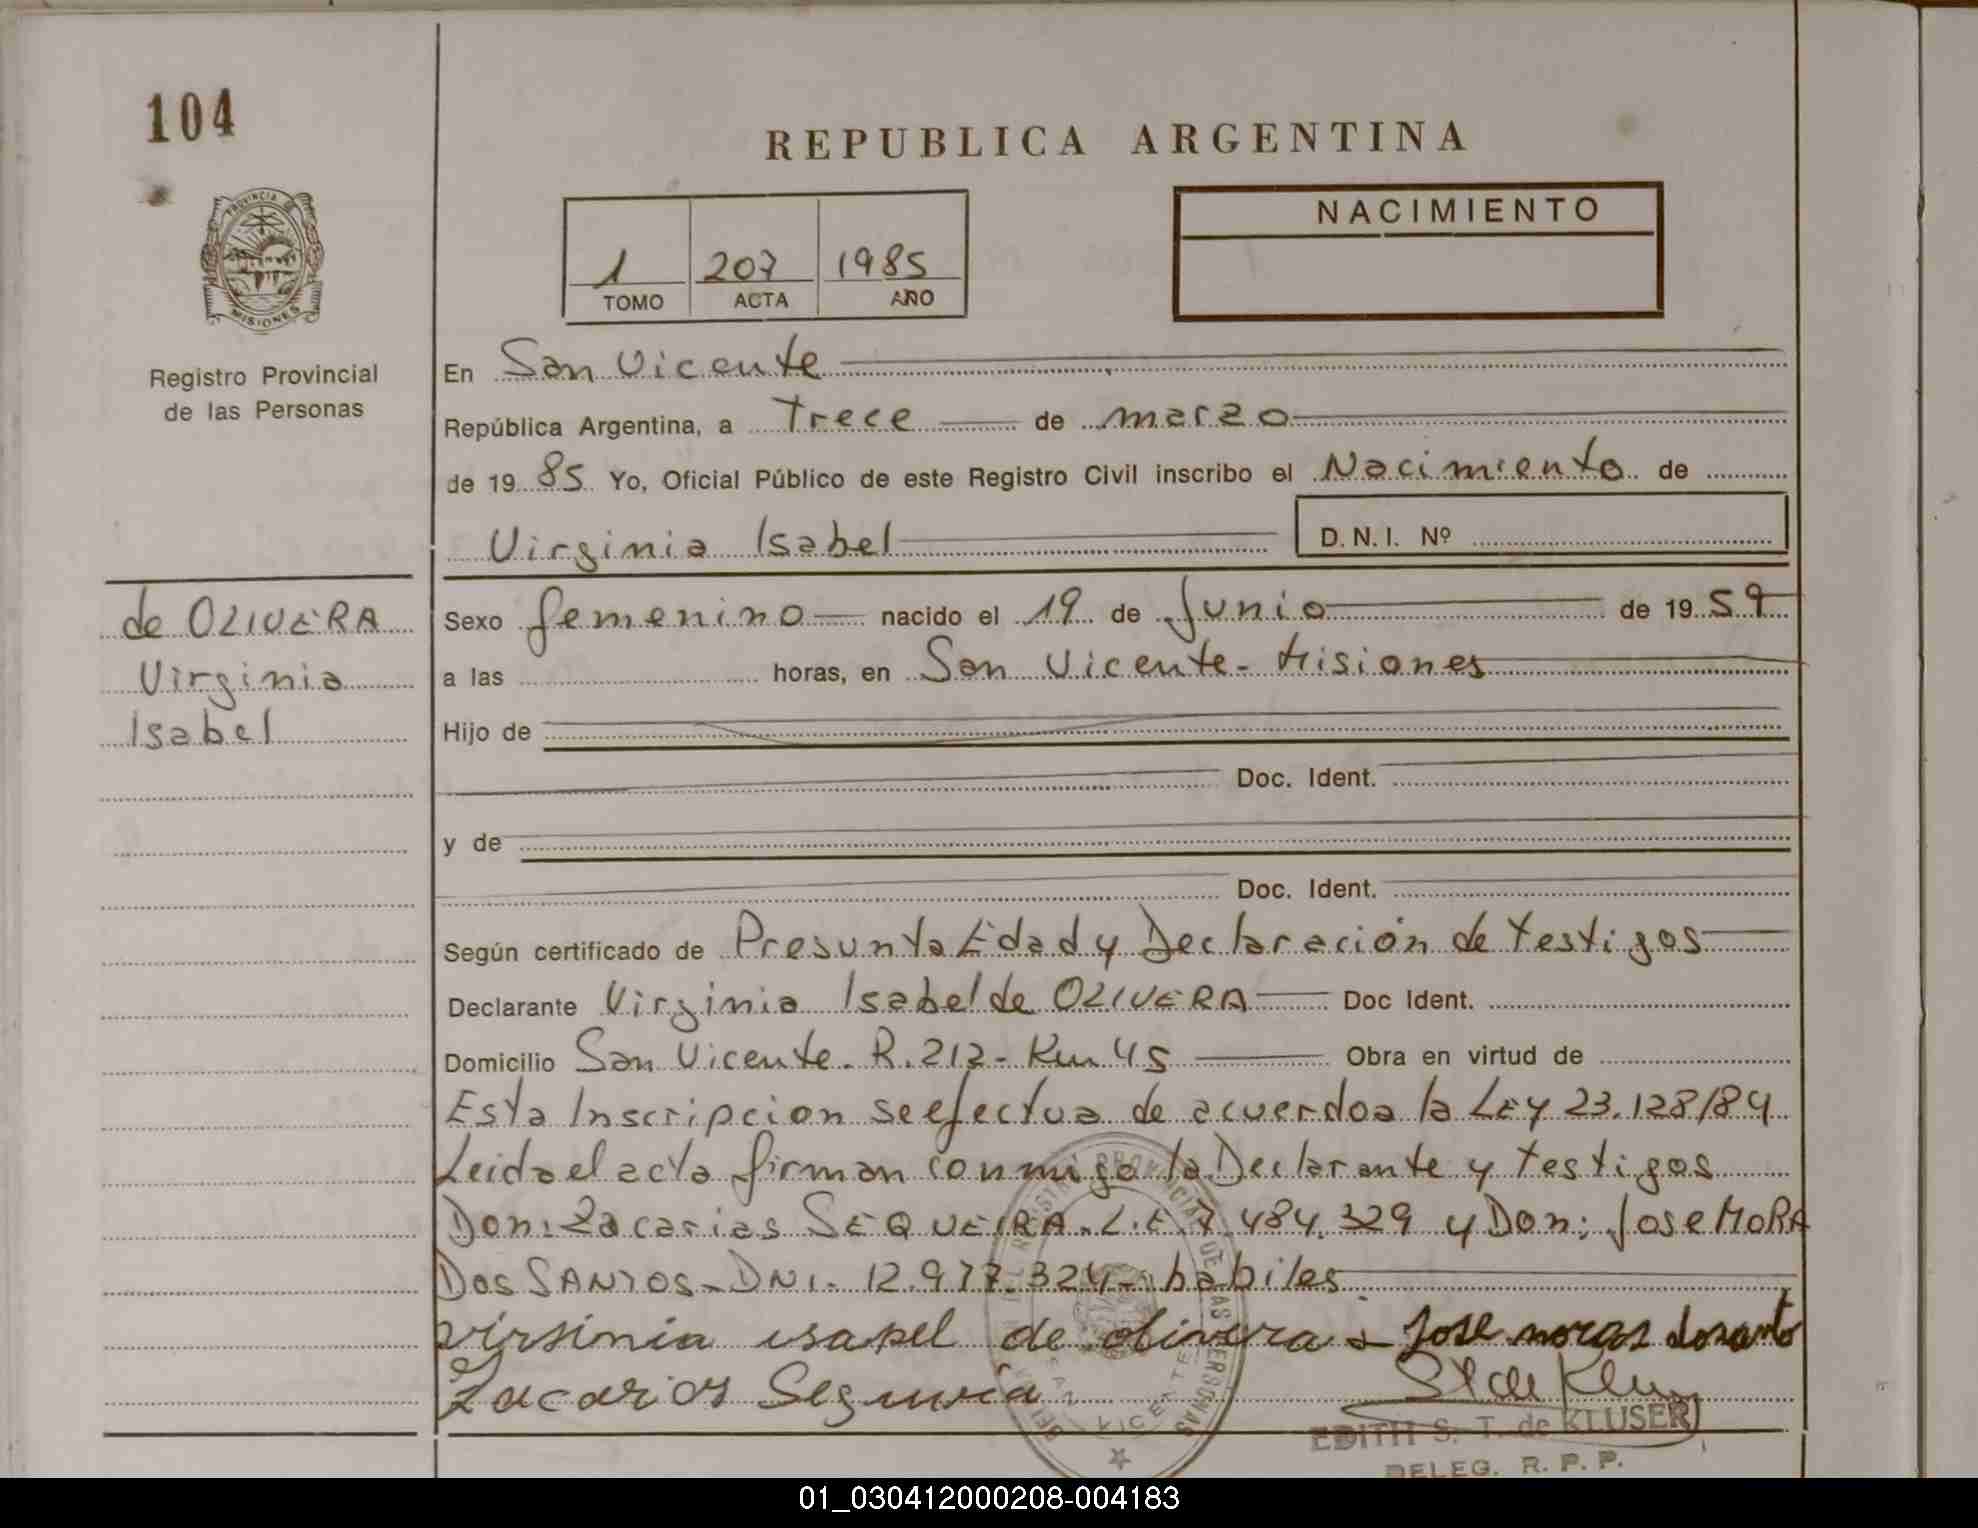 104
REPUBLICA ARGENTINA
PROVINCIA DE
MISIONES
Registro Provincial
de las Personas
1 207 1985
TOMO ACTA AÑO
NACIMIENTO
En San Vicente
República Argentina, a Trece de marzo
de 19 85 Yo, Oficial Público de este Registro Civil inscribo el Nacimiento de
Virginia Isabel D.N.I. Nº
de OLIVERA
Virginia
Isabel
Sexo femenino nacido el 19 de Junio de 19 59
a las horas, en San Vicente - Misiones
Hijo de
Doc. Ident.
y de
Doc. Ident.
Según certificado de Presunta Edad y Declaración de testigos
Declarante Virginia Isabel de OLIVERA Doc Ident.
Domicilio San Vicente - R. 212 - Km 45 Obra en virtud de
Esta Inscripcion se efectua de acuerdo a la LEY 23.128/84
Leida el acta firman conmigo la Declarante y testigos
Don: Zacarias SEQUEIRA - L.E. 7.484.329 y Don: Jose MORA
Dos SANTOS - DNI - 12.977.324 - habiles
virsinia isapel de olivera - Jose moras dosanto
Zacarios
EDITH S. T. de KLUSER
DELEG. R. P. P.
01_030412000208-004183